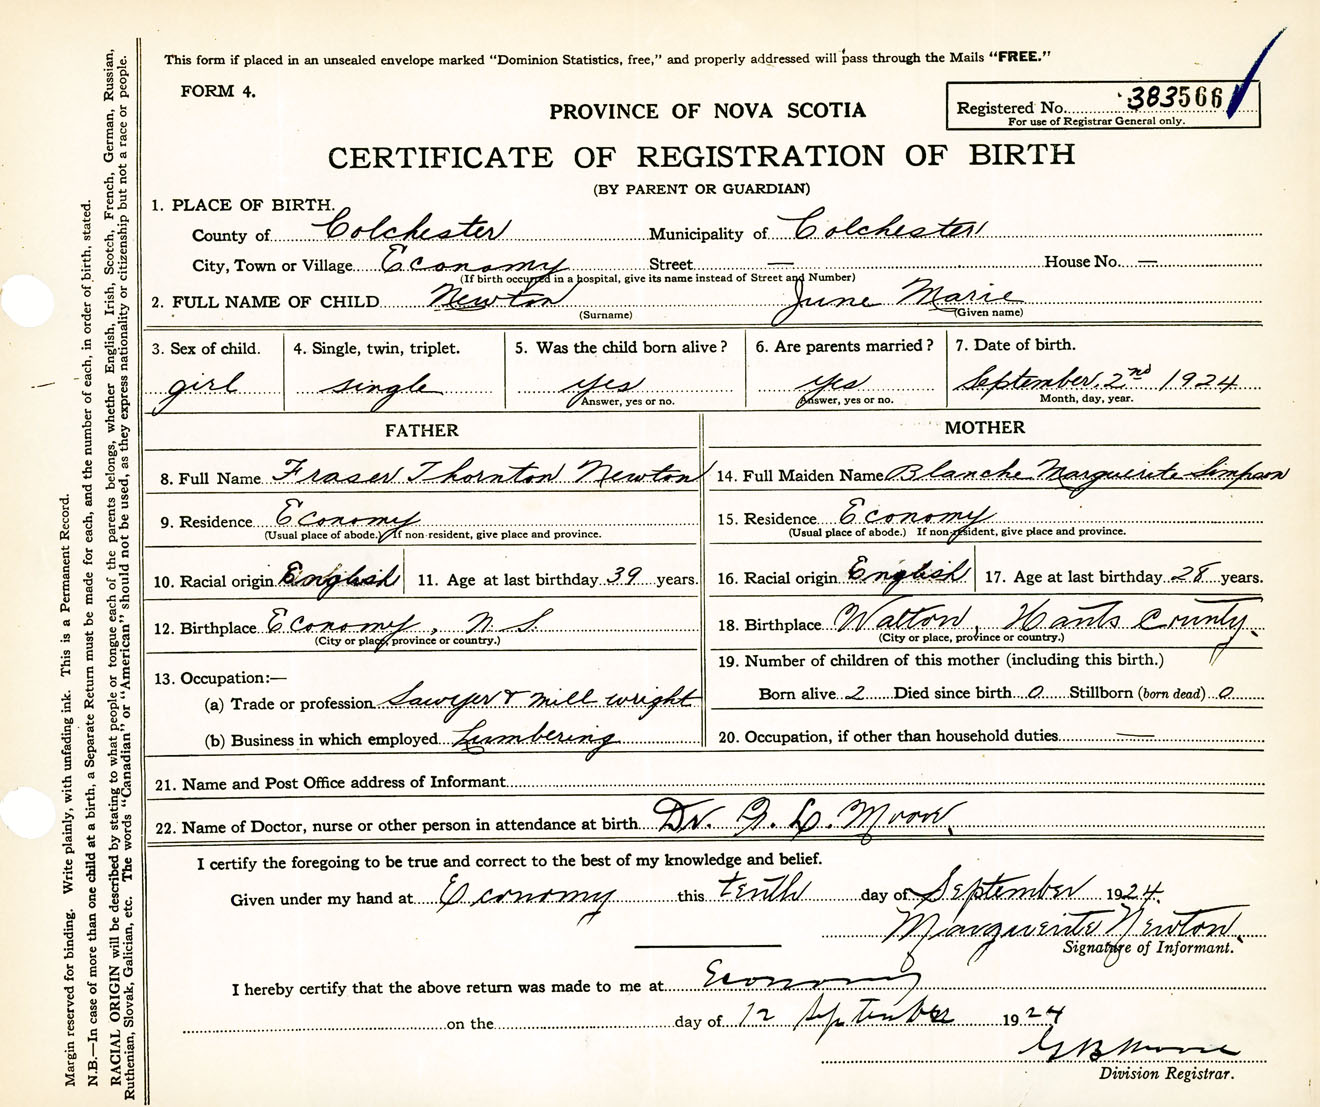 This form if placed in an unsealed envelope marked "Dominion Statistics, free," and properly addressed will pass through the Mails "FREE."
FORM 4.
Registered No. 383566
For use of Registrar General only.
PROVINCE OF NOVA SCOTIA
CERTIFICATE OF REGISTRATION OF BIRTH
(BY PARENT OR GUARDIAN)
1. PLACE OF BIRTH.
County of Colchester Municipality of Colchester
City, Town or Village Economy Street — House No. —
(If birth occurred in a hospital, give its name instead of Street and Number)
2. FULL NAME OF CHILD Newton June Marie
(Surname) (Given name)
3. Sex of child. 4. Single, twin, triplet. 5. Was the child born alive? 6. Are parents married? 7. Date of birth.
girl single yes yes September 2nd 1924
Answer, yes or no. Answer, yes or no. Month, day, year.
FATHER MOTHER
8. Full Name Fraser Thornton Newton 14. Full Maiden Name Blanche Marguerite Simpson
9. Residence Economy 15. Residence Economy
(Usual place of abode.) If non-resident, give place and province. (Usual place of abode.) If non-resident, give place and province.
10. Racial origin English 11. Age at last birthday 39 years. 16. Racial origin English 17. Age at last birthday 28 years.
12. Birthplace Economy, N.S. 18. Birthplace Walton, Hants County.
(City or place, province or country.) (City or place, province or country.)
13. Occupation:— 19. Number of children of this mother (including this birth.)
(a) Trade or profession Sawyer & mill wright Born alive 2 Died since birth 0 Stillborn (born dead) 0
(b) Business in which employed Lumbering 20. Occupation, if other than household duties —
21. Name and Post Office address of Informant
22. Name of Doctor, nurse or other person in attendance at birth Dr. G. L. Moore.
I certify the foregoing to be true and correct to the best of my knowledge and belief.
Given under my hand at Economy this tenth day of September 1924.
Marguerite Newton.
Signature of Informant.
I hereby certify that the above return was made to me at Economy
on the day of 12 September 1924
G B Moore
Division Registrar.
Margin reserved for binding. Write plainly, with unfading ink. This is a Permanent Record.
N.B.—In case of more than one child at a birth, a Separate Return must be made for each, and the number of each, in order of birth, stated.
RACIAL ORIGIN will be described by stating to what people or tongue each of the parents belongs, whether English, Irish, Scotch, French, German, Russian,
Ruthenian, Slovak, Galician, etc. The words "Canadian" or "American" should not be used, as they express nationality or citizenship but not a race or people.